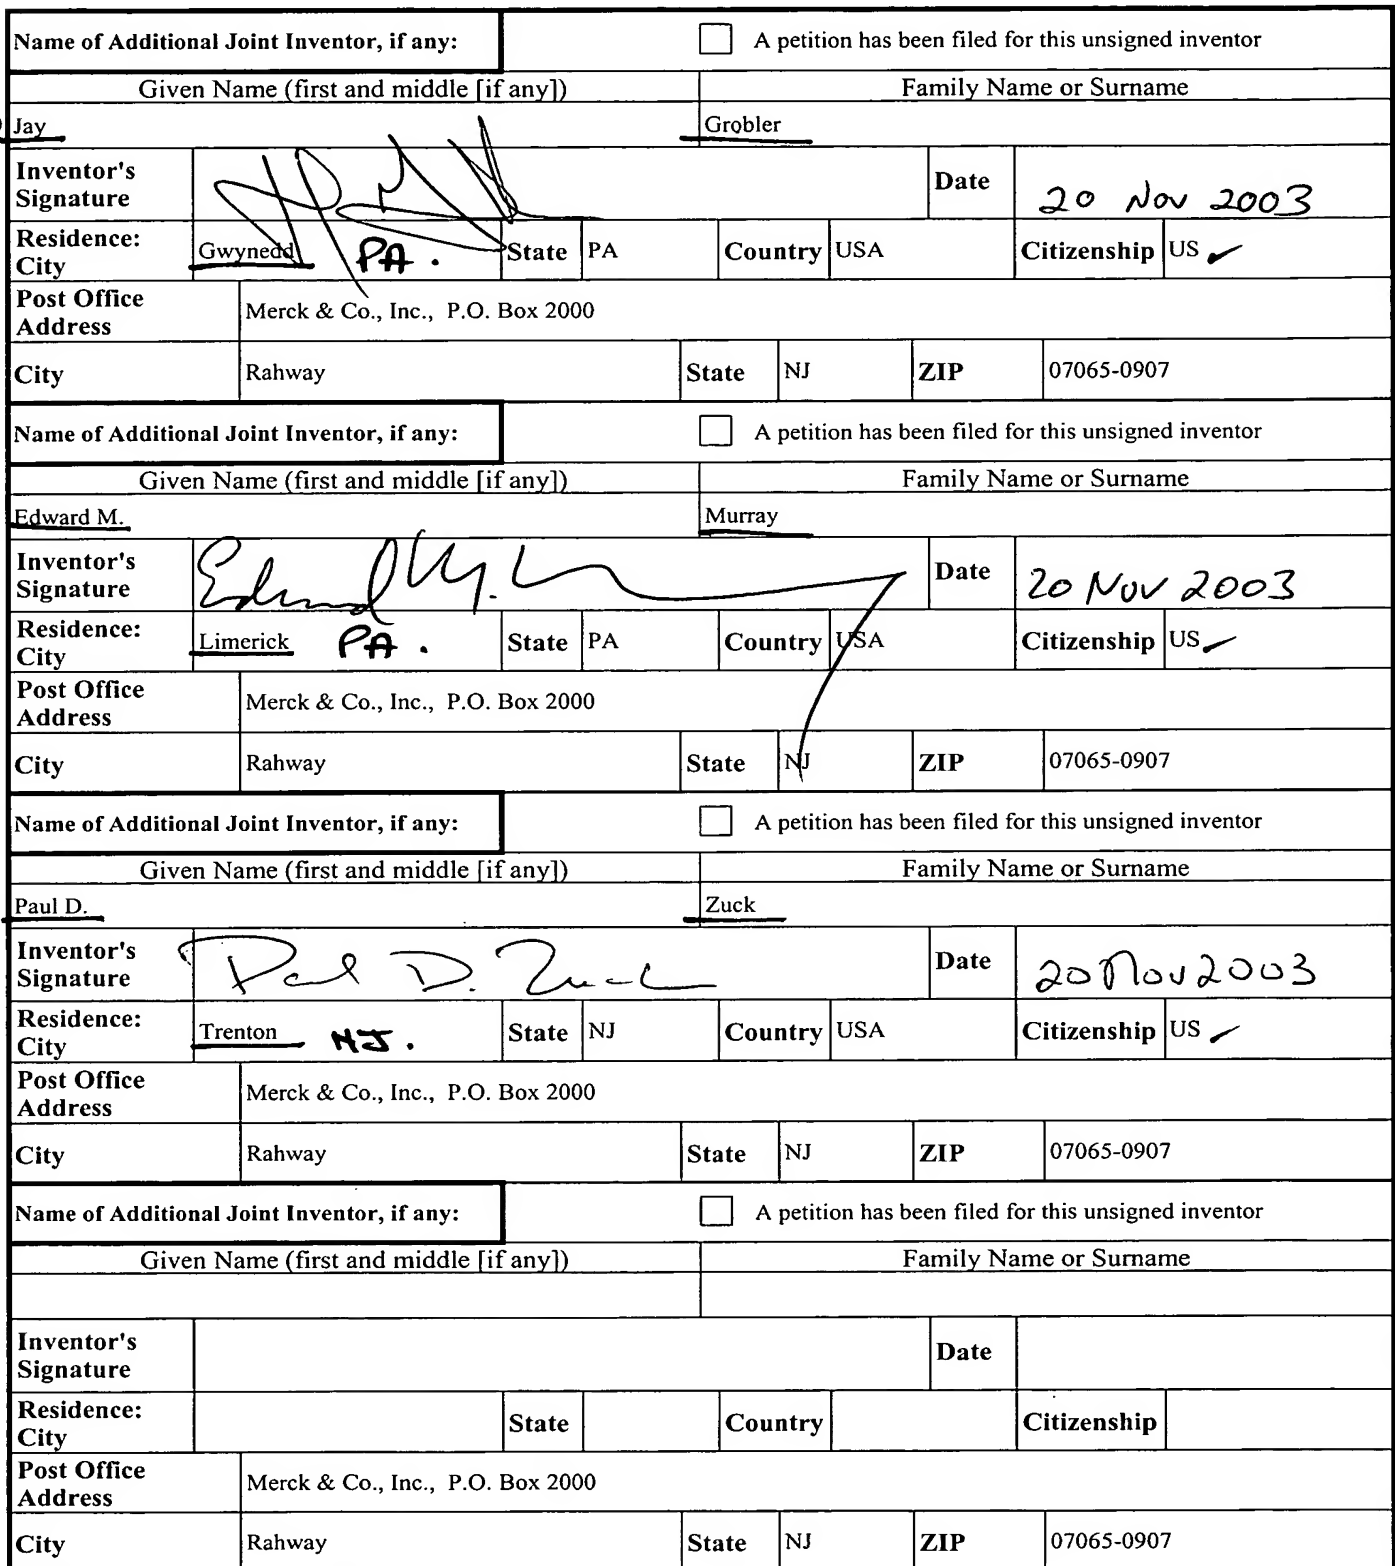 Name of Additional Joint Inventor, if any: A petition has been filed for this unsigned inventor
Given Name (first and middle [if any]) Family Name or Surname
Jay Grobler
Inventor's Signature Date 20 Nov 2003
Residence: City Gwynedd PA. State PA Country USA Citizenship US
Post Office Address Merck & Co., Inc., P.O. Box 2000
City Rahway State NJ ZIP 07065-0907
Name of Additional Joint Inventor, if any: A petition has been filed for this unsigned inventor
Given Name (first and middle [if any]) Family Name or Surname
Edward M. Murray
Inventor's Signature Date 20 Nov 2003
Residence: City Limerick PA. State PA Country USA Citizenship US
Post Office Address Merck & Co., Inc., P.O. Box 2000
City Rahway State NJ ZIP 07065-0907
Name of Additional Joint Inventor, if any: A petition has been filed for this unsigned inventor
Given Name (first and middle [if any]) Family Name or Surname
Paul D. Zuck
Inventor's Signature Paul D. Zuck Date 20 Nov 2003
Residence: City Trenton NJ. State NJ Country USA Citizenship US
Post Office Address Merck & Co., Inc., P.O. Box 2000
City Rahway State NJ ZIP 07065-0907
Name of Additional Joint Inventor, if any: A petition has been filed for this unsigned inventor
Given Name (first and middle [if any]) Family Name or Surname
Inventor's Signature Date
Residence: City State Country Citizenship
Post Office Address Merck & Co., Inc., P.O. Box 2000
City Rahway State NJ ZIP 07065-0907